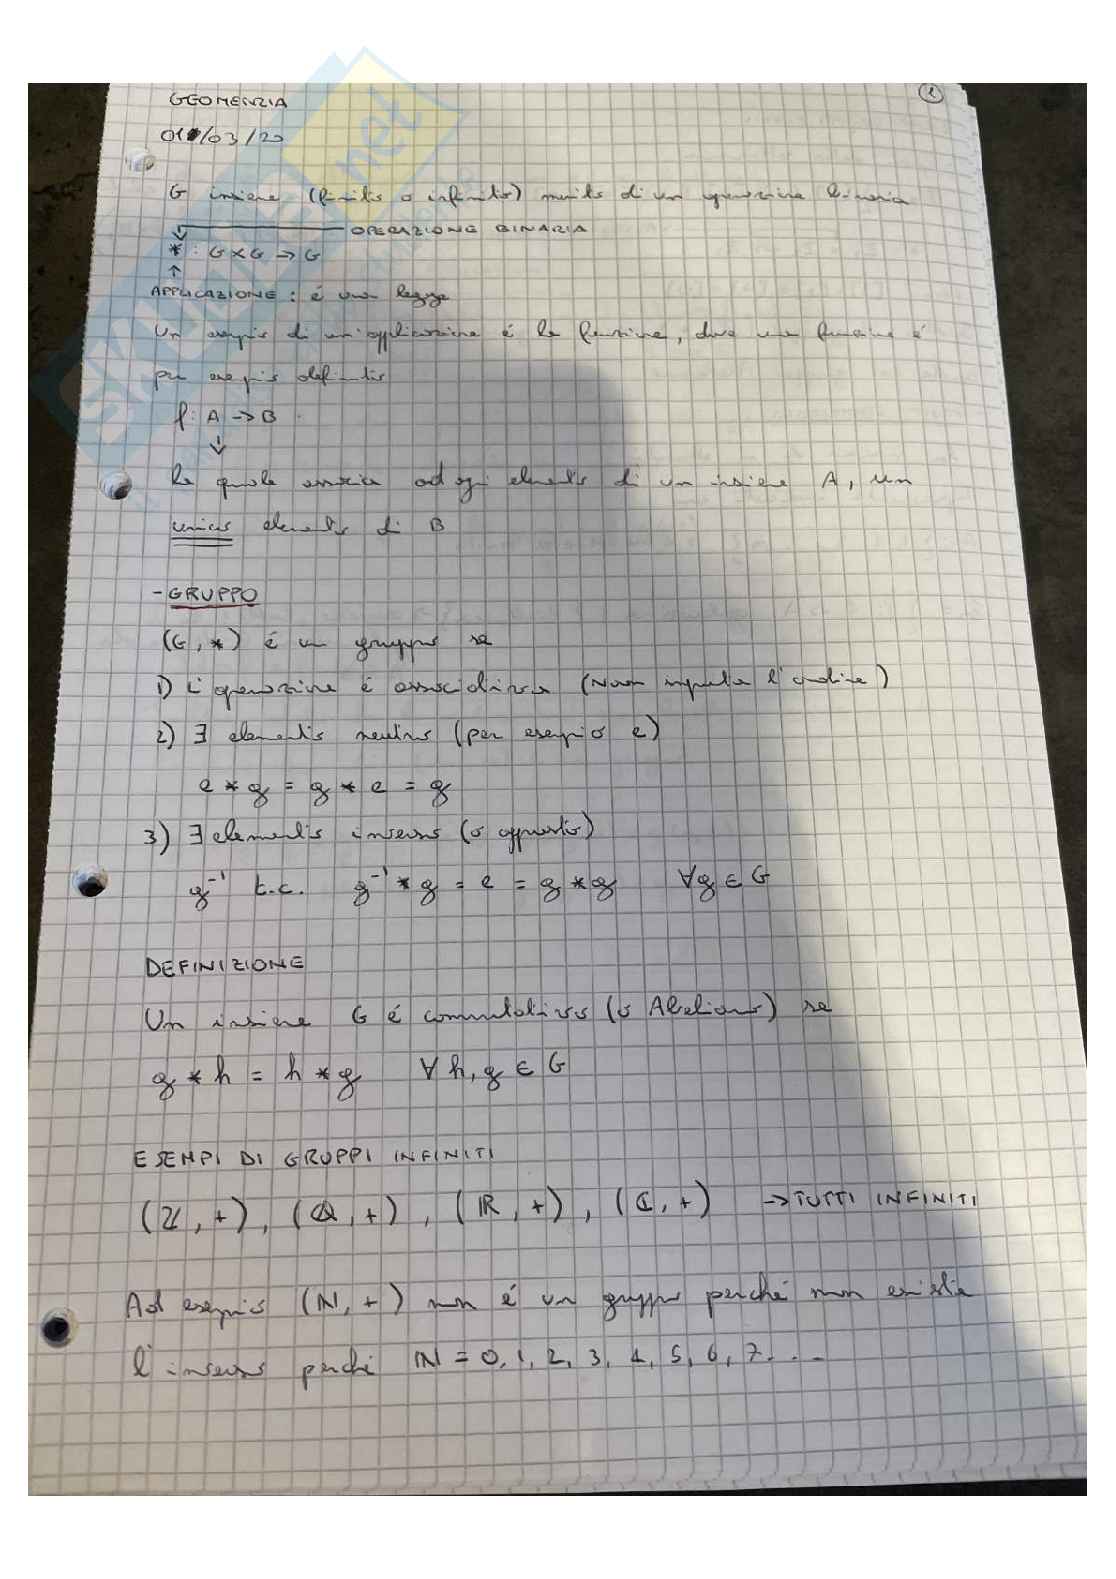 1
GEOMETRIA
01/03/20
G insieme (finito o infinito) munito di un operazione binaria
OPERAZIONE BINARIA
* : G x G → G
APPLICAZIONE : é una legge
Un esempio di un'applicazione é la funzione, dove una funzione é
per esempio definito
f: A → B
la quale associa ad ogni elemento di un insieme A, un
unico elemento di B
- GRUPPO
(G, *) é un gruppo se
1) L'operazione é associativa (Non importa l'ordine)
2) ∃ elemento neutro (per esempio e)
e * g = g * e = g
3) ∃ elemento inverso (o opposto)
g⁻¹ t.c. g⁻¹ * g = e = g * g ∀g ∈ G
DEFINIZIONE
Un insieme G é commutativo (o Abeliano) se
g * h = h * g ∀ h, g ∈ G
ESEMPI DI GRUPPI INFINITI
(ℤ, +), (ℚ, +), (ℝ, +), (ℂ, +) → TUTTI INFINITI
Ad esempio (ℕ, +) non é un gruppo perché non esiste
l'inverso perché ℕ = 0, 1, 2, 3, 4, 5, 6, 7...
skuola.net